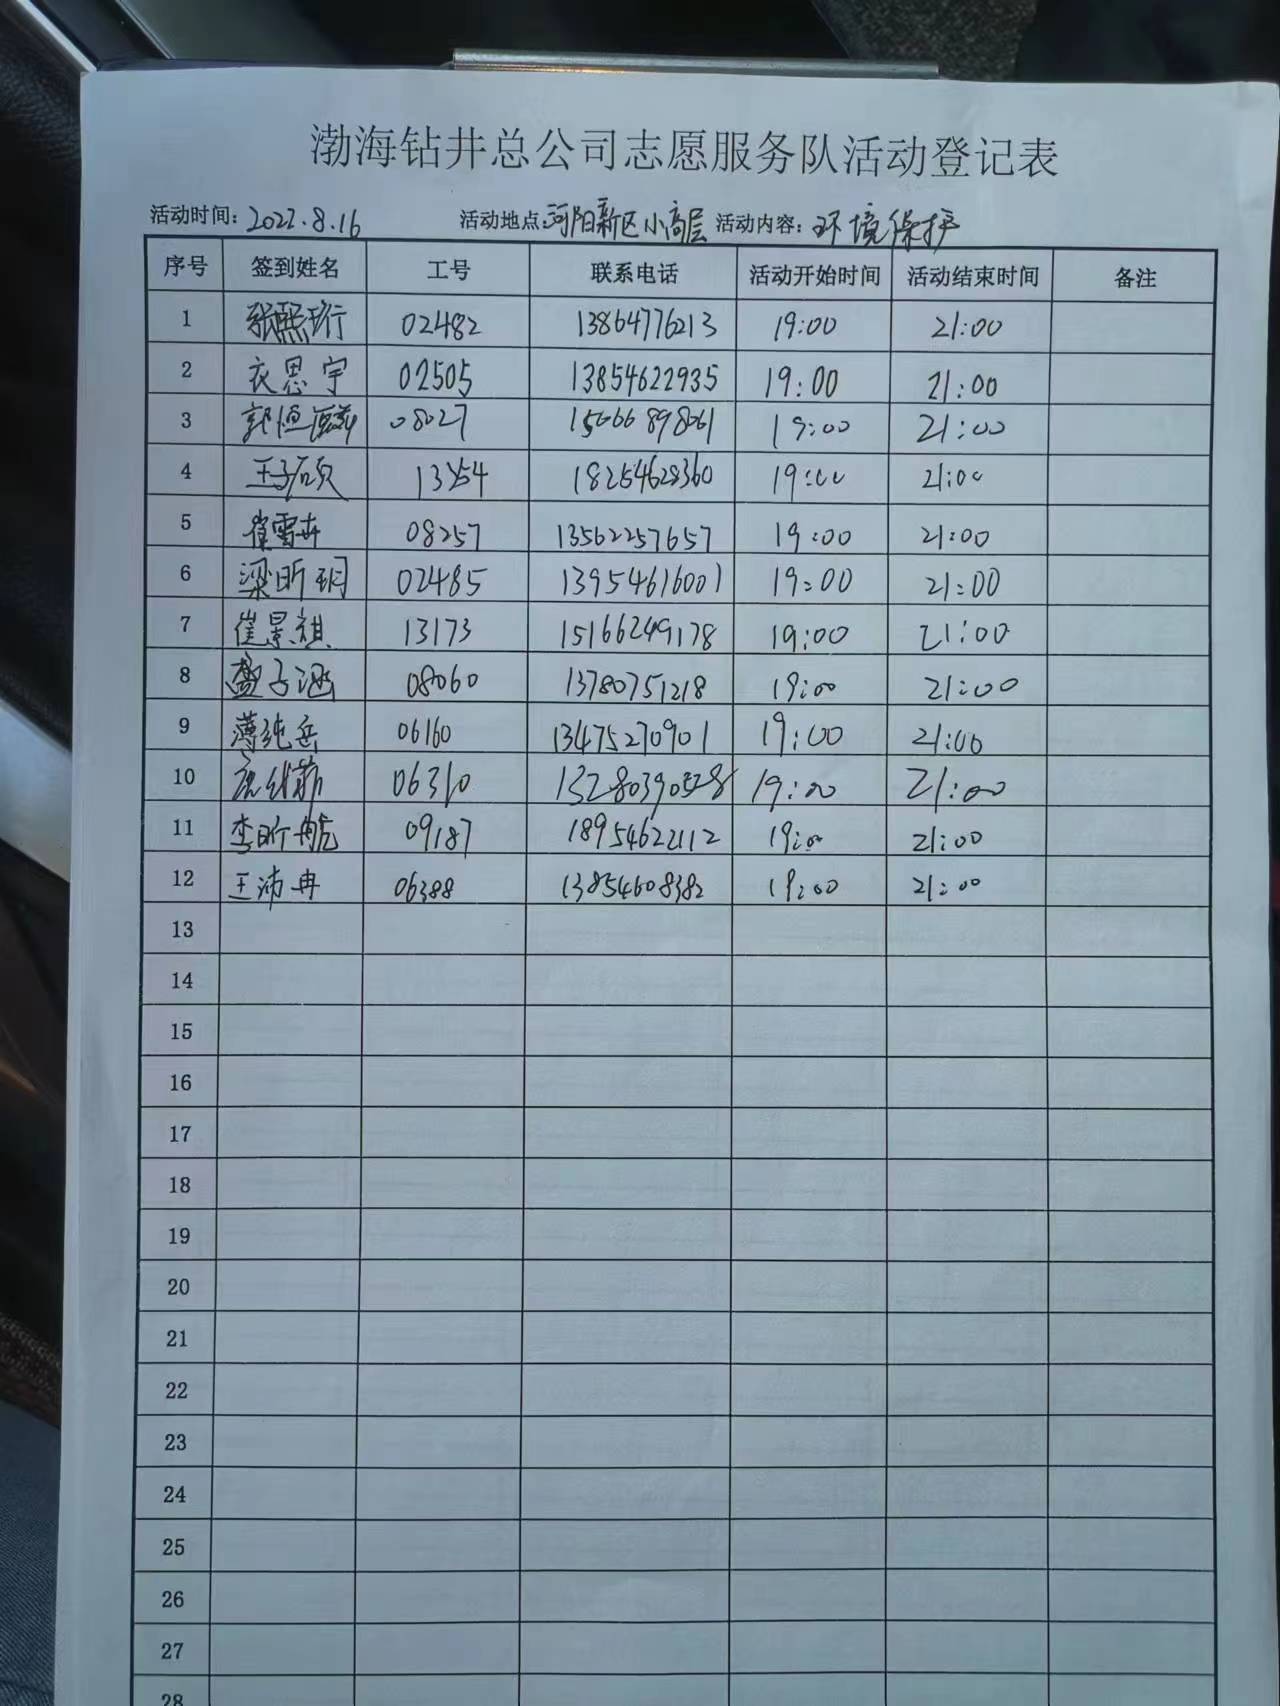 渤海钻井总公司志愿服务队活动登记表
活动时间: 2022.8.16 活动地点: 河阳新区小高层 活动内容: 环境保护
序号 签到姓名 工号 联系电话 活动开始时间 活动结束时间 备注
1 张熙珩 02482 13864776213 19:00 21:00
2 衣思宇 02505 13854622935 19:00 21:00
3 08027 15066898061 19:00 21:00
4 王子硕 18254628360 19:00 21:00
5 崔雪冉 08257 13562257657 19:00 21:00
6 梁昕玥 02485 13954616001 19:00 21:00
7 崔景祺 13173 15166249178 19:00 21:00
8 盖子涵 08060 13780751218 19:00 21:00
9 薄纯岳 06160 13475270901 19:00 21:00
10 06310 19:00 21:00
11 李昕航 09187 18954622112 19:00 21:00
12 王沛冉 06388 13854608382 19:00 21:00
13
14
15
16
17
18
19
20
21
22
23
24
25
26
27
28